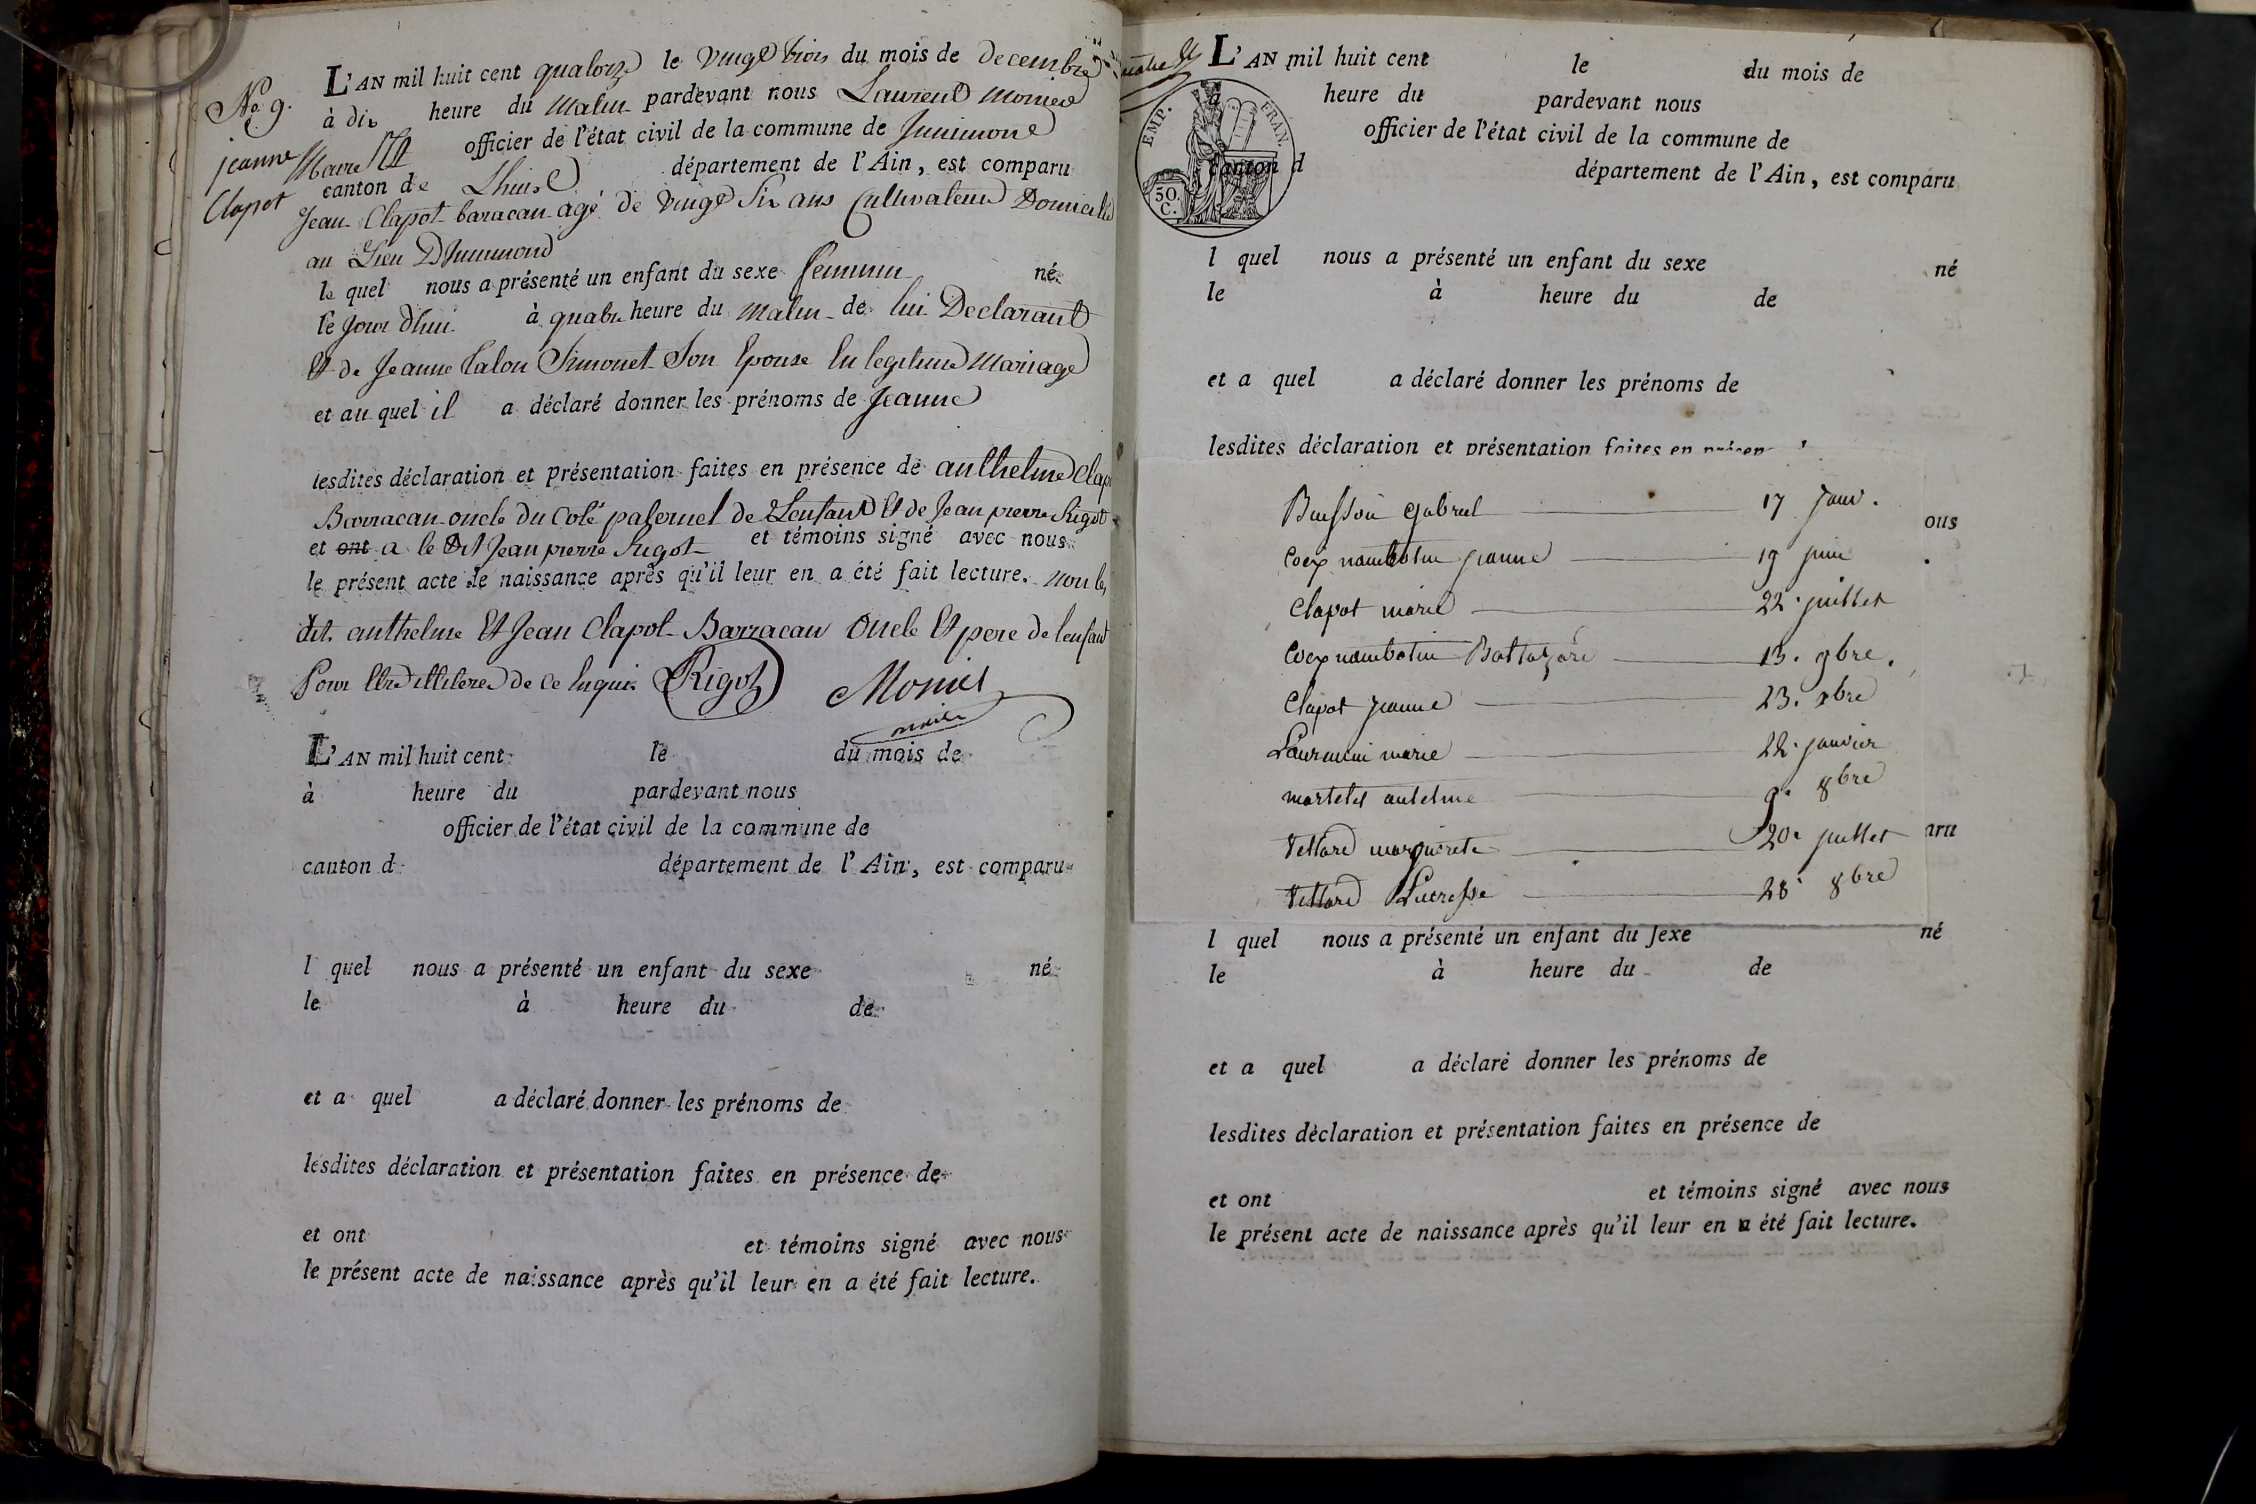 No 9.
jeanne
Clapot
L'AN mil huit cent quatorze le vingt trois du mois de decembre
à dix heure du matin pardevant nous Laurent Monier
Maire officier de l'état civil de la commune de Jnnimont
canton de Lhuis département de l'Ain, est comparu
Jean Clapot baracan agé de vingt six ans Cultivateur Domicilié
au Lieu D'Jnnimond
le quel nous a présenté un enfant du sexe feminin né
le Jour d'hui à quatre heure du matin de lui Declarant
Et de Jeanne Talon Simonet Son Epouse En legitime Mariage
et au quel il a déclaré donner les prénoms de Jeanne
lesdites déclaration et présentation faites en présence de anthelme Clapot
Barracan oncle du Coté paternel de Lenfant Et de Jean pierre Rigot
et ont a le dit Jean pierre Rigot et témoins signé avec nous
le présent acte de naissance après qu'il leur en a été fait lecture. non le
dit anthelme Et Jean Clapot Barracan Oncle Et pere de lenfant
Pour Etre illiteres de ce Enquis Rigot Monier
maire
L'AN mil huit cent le du mois de
à heure du pardevant nous
officier de l'état civil de la commune de
canton d département de l'Ain, est comparu
l quel nous a présenté un enfant du sexe né
le à heure du de
et a quel a déclaré donner les prénoms de
lesdites déclaration et présentation faites en présence de
et ont et témoins signé avec nous
le présent acte de naissance après qu'il leur en a été fait lecture.
L'AN mil huit cent le du mois de
à heure du pardevant nous
officier de l'état civil de la commune de
canton d département de l'Ain, est comparu
EMP. FRAN.
50.
C.
l quel nous a présenté un enfant du sexe né
le à heure du de
et a quel a déclaré donner les prénoms de
lesdites déclaration et présentation faites en présen
Buisson gabriel 17 janv.
ous
Coex nambotin jeanne 19 juin
Clapot marie 22. juillet
Coex nambotin Baltazare 13. 9bre.
Clapot jeanne 23. xbre
Laurencin marie 22. janvier
martelet antelme 9. 8bre
vettard marguerite 20. juillet
aru
vettard Lucresse 28. 8bre
l quel nous a présenté un enfant du sexe né
le à heure du de
et a quel a déclaré donner les prénoms de
lesdites déclaration et présentation faites en présence de
et ont et témoins signé avec nous
le présent acte de naissance après qu'il leur en a été fait lecture.